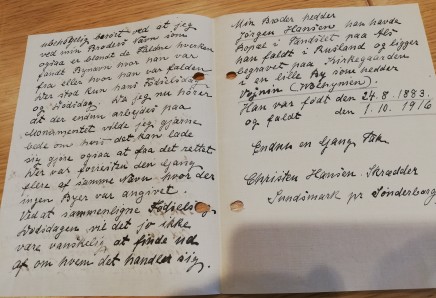 ubehøpelig berørt ved at jeg
ved min Broders Navn som
ogsaa er blandt de Faldne hverken
fandt Bynavn hvor han var
fra eller hvor han var falden
Der stod kun hans Fødselsdag
og Dødsdag. Da jeg nu hører
at der endnu arbejdes paa
Monumentet vilde jeg gjærne
bede om hvis det kan lade
sig gjøre ogsaa at faa det rettet
Der var forresten den Gang
flere af samme Navn hvor der
ingen Byer var angivet.
Ved at sammenligne Fødsels og
Dødsdagen vil det jo ikke
være vanskelig at finde ud
af om hvem det handler sig.
Min Broder hedder
Jørgen Hansen han havde
Bopæl i
han faldt i Rusland og ligger
begravet paa Kirkegaarden
i en lille By som hedder
Vojnin (Wolhynien)
Han var født den 24.8.1883.
og faldt den 1.10.1916
Endnu en Gang Tak
Christen Hansen. Skrædder
Sundsmark pr Sønderborg